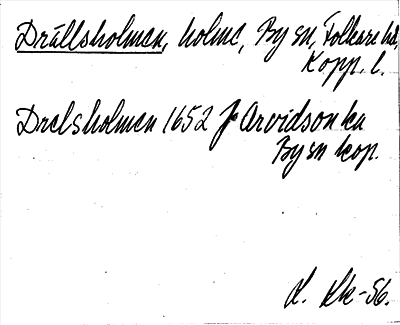 Drällsholmen, holme, By sn, Folkare hd,
Kopp. l.
Drelsholmen 1652 J Arvidson ka
By sn kop.
L. Hk-56.